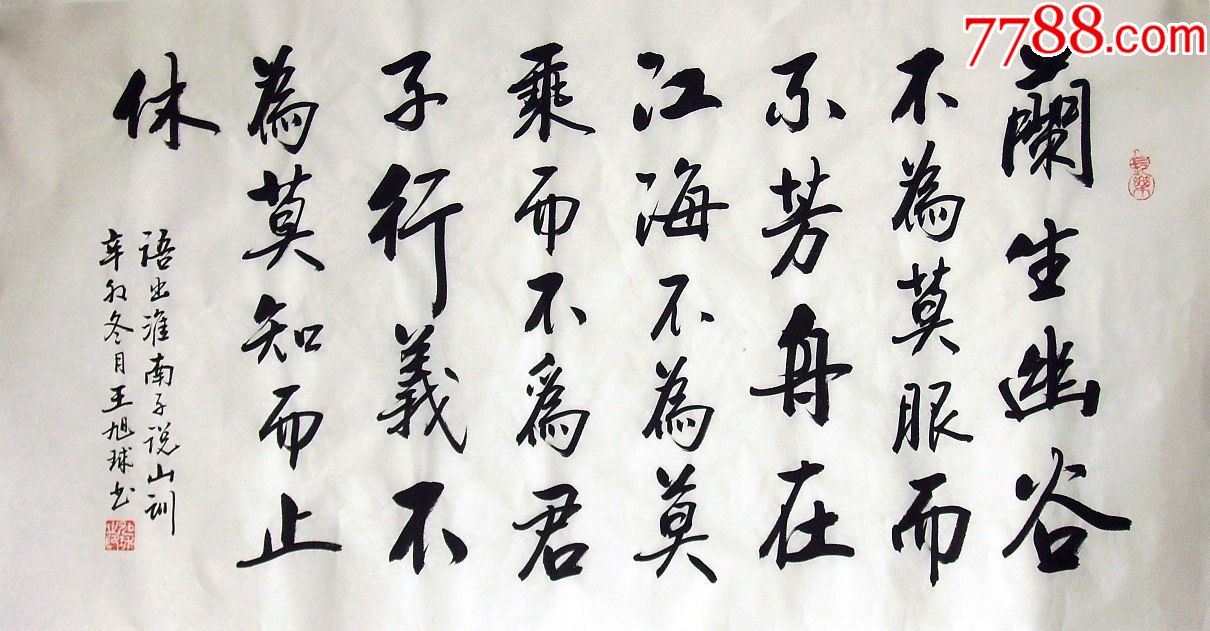 7788.com
蘭生幽谷
不為莫服而
不芳舟在
江海不為莫
乘而不為君
子行義不
為莫知而止
休
語出淮南子说山訓
辛卯冬月王旭球书